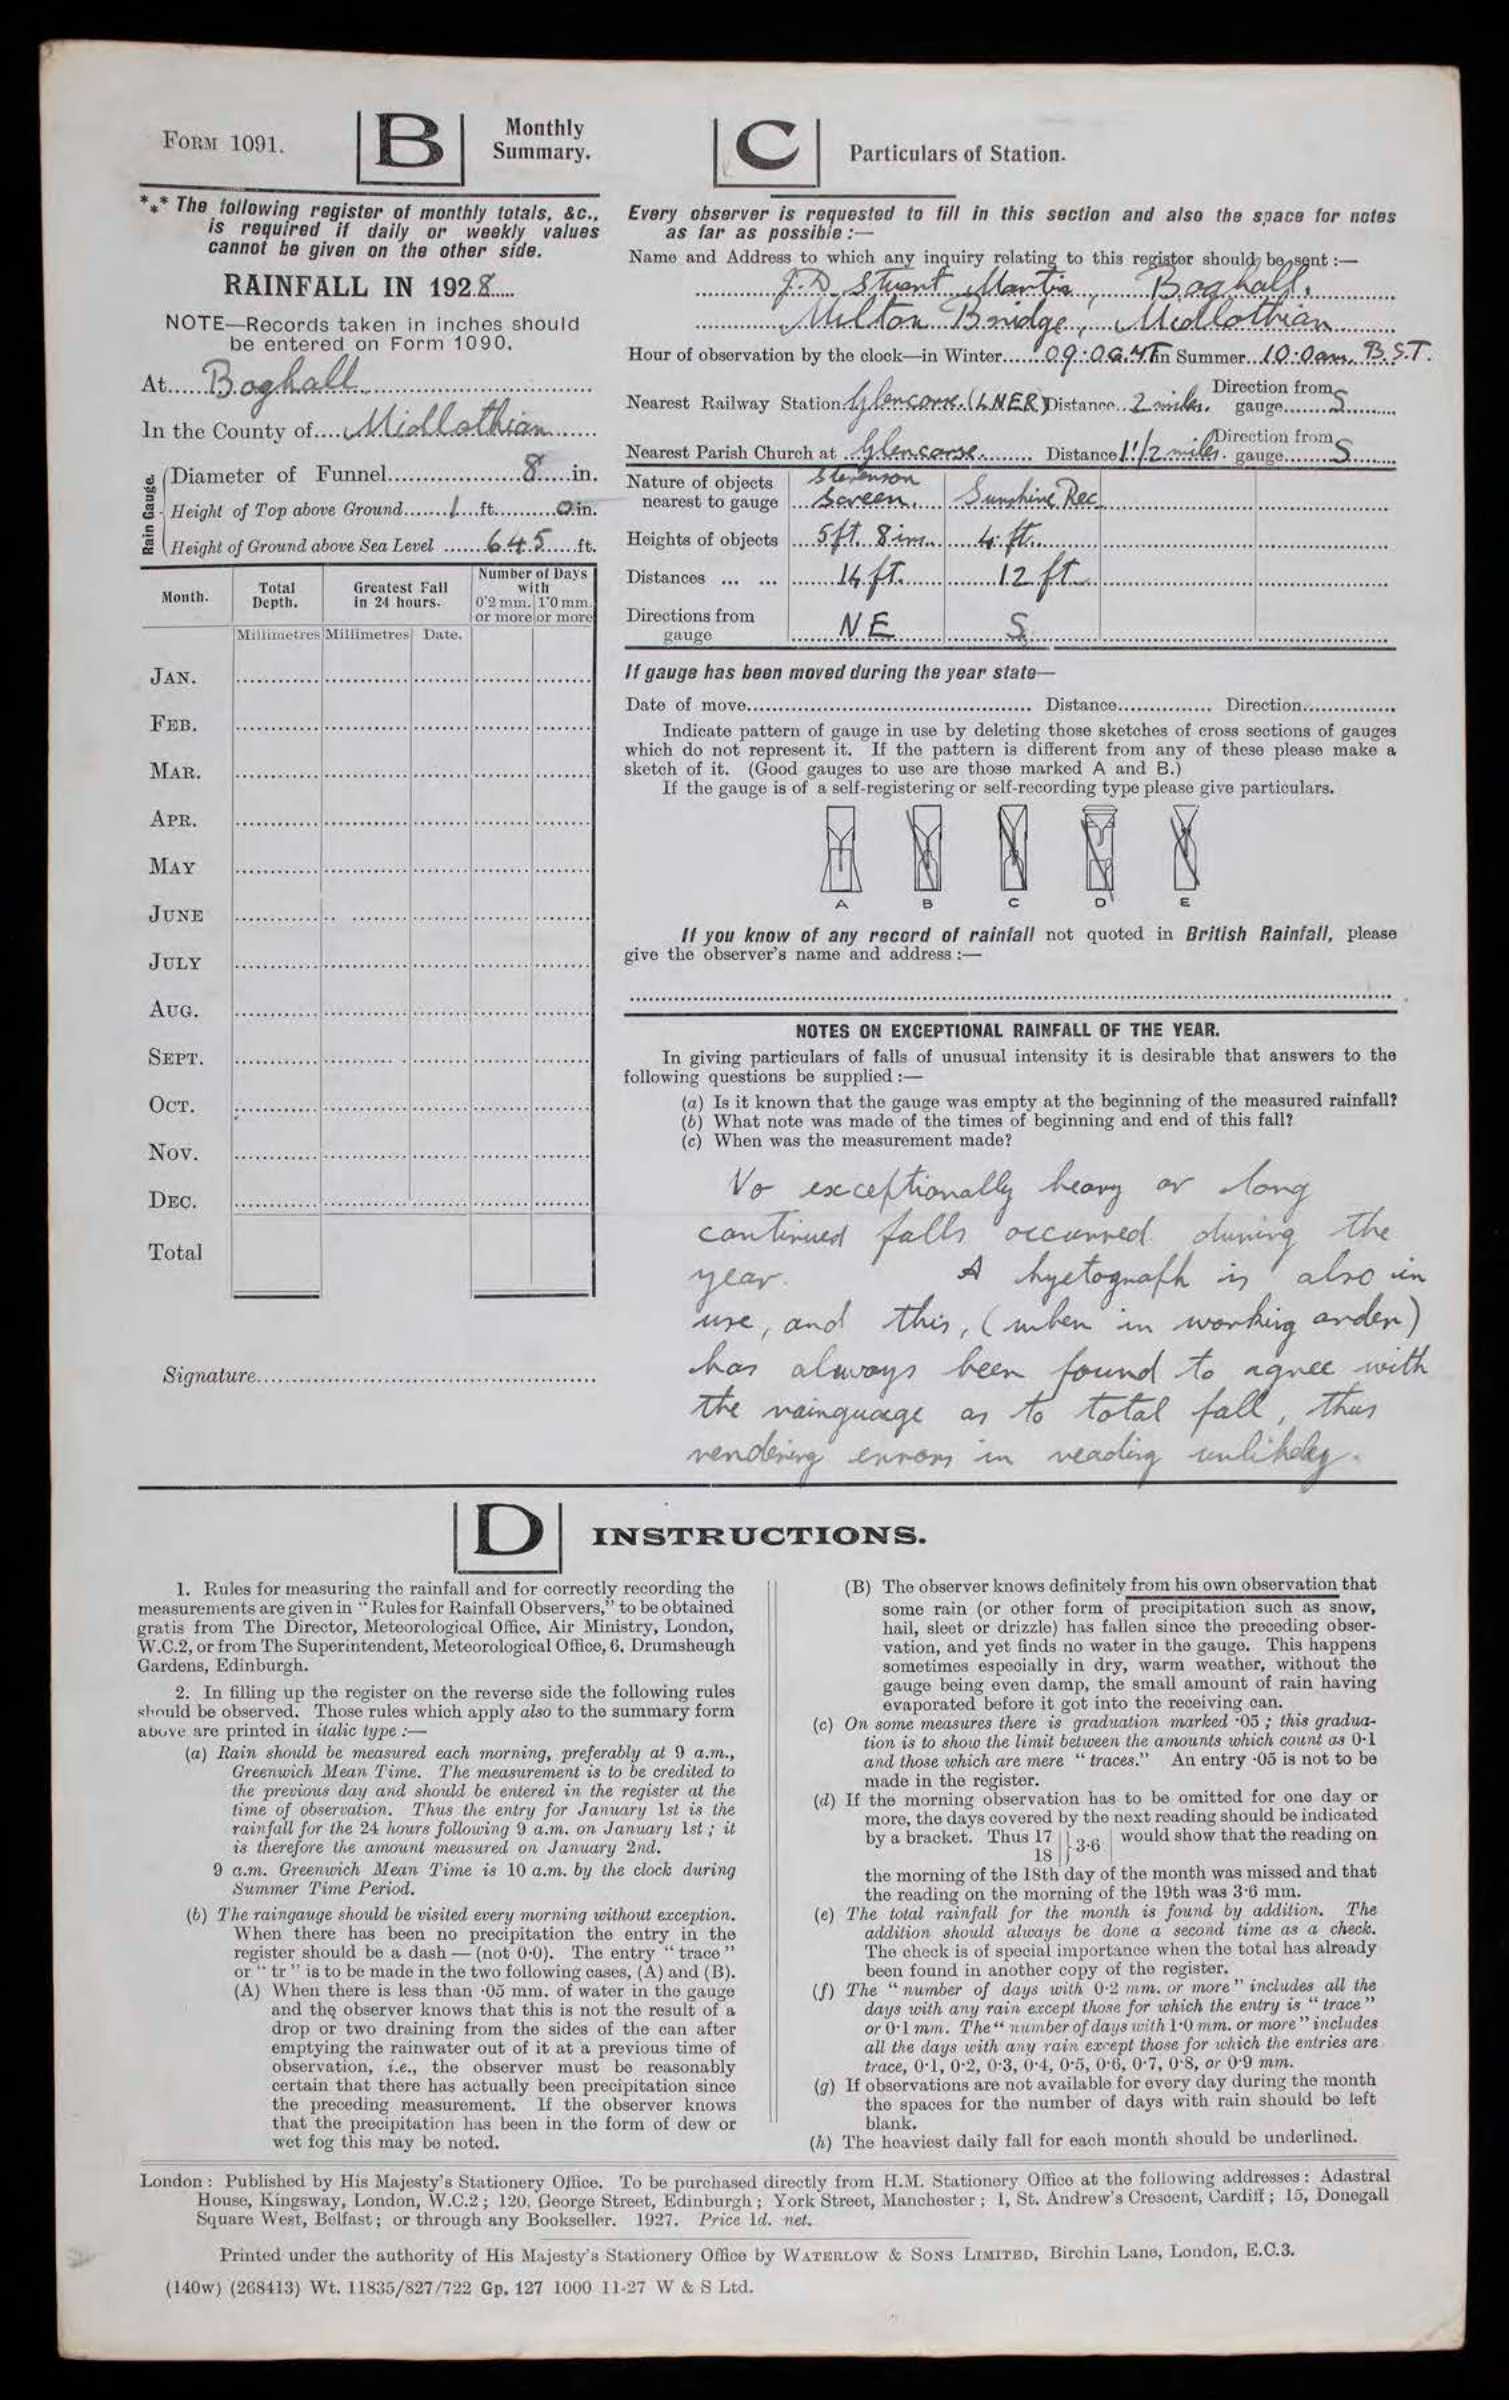 FORM 1091.
B
Monthly
Summary.
*** The following register of monthly totals, &c.,
is required if daily or weekly values
cannot be given on the other side.
RAINFALL IN 1928
NOTE—Records taken in inches should
be entered on Form 1090.
At Boghall
In the County of Midlothian
Rain Gauge.
Diameter of Funnel 8 in.
Height of Top above Ground 1 ft. 0 in.
Height of Ground above Sea Level 645 ft.
Month. Total Depth. Greatest Fall in 24 hours. Number of Days with
0·2 mm. or more 1·0 mm. or more
Millimetres Millimetres Date.
JAN.
FEB.
MAR.
APR.
MAY
JUNE
JULY
AUG.
SEPT.
OCT.
NOV.
DEC.
Total
Signature
C
Particulars of Station.
Every observer is requested to fill in this section and also the space for notes
as far as possible:—
Name and Address to which any inquiry relating to this register should be sent:—
J.D. Stuart Martin, Boghall,
Milton Bridge, Midlothian
Hour of observation by the clock—in Winter 09:0 G.M.T in Summer 10:0am. B.S.T.
Nearest Railway Station Glencorse. (LNER) Distance 2 miles. Direction from gauge S
Nearest Parish Church at Glencorse Distance 1 1/2 miles. Direction from gauge S
Nature of objects nearest to gauge Stevenson Screen. Sunshine Rec
Heights of objects 5ft. 8 ins. 4 ft.
Distances ... ... 14 ft. 12 ft.
Directions from gauge NE S
If gauge has been moved during the year state—
Date of move Distance Direction
Indicate pattern of gauge in use by deleting those sketches of cross sections of gauges
which do not represent it. If the pattern is different from any of these please make a
sketch of it. (Good gauges to use are those marked A and B.)
If the gauge is of a self-registering or self-recording type please give particulars.
A B C D E
If you know of any record of rainfall not quoted in British Rainfall, please
give the observer's name and address:—
NOTES ON EXCEPTIONAL RAINFALL OF THE YEAR.
In giving particulars of falls of unusual intensity it is desirable that answers to the
following questions be supplied:—
(a) Is it known that the gauge was empty at the beginning of the measured rainfall?
(b) What note was made of the times of beginning and end of this fall?
(c) When was the measurement made?
No exceptionally heavy or long
continued falls occurred during the
year. A hyetograph is also in
use, and this, (when in working order)
has always been found to agree with
the rainguage as to total fall, thus
rendering errors in reading unlikeley.
D
INSTRUCTIONS.
1. Rules for measuring the rainfall and for correctly recording the
measurements are given in "Rules for Rainfall Observers," to be obtained
gratis from The Director, Meteorological Office, Air Ministry, London,
W.C.2, or from The Superintendent, Meteorological Office, 6, Drumsheugh
Gardens, Edinburgh.
2. In filling up the register on the reverse side the following rules
should be observed. Those rules which apply also to the summary form
above are printed in italic type:—
(a) Rain should be measured each morning, preferably at 9 a.m.,
Greenwich Mean Time. The measurement is to be credited to
the previous day and should be entered in the register at the
time of observation. Thus the entry for January 1st is the
rainfall for the 24 hours following 9 a.m. on January 1st; it
is therefore the amount measured on January 2nd.
9 a.m. Greenwich Mean Time is 10 a.m. by the clock during
Summer Time Period.
(b) The raingauge should be visited every morning without exception.
When there has been no precipitation the entry in the
register should be a dash — (not 0·0). The entry "trace"
or "tr" is to be made in the two following cases, (A) and (B).
(A) When there is less than ·05 mm. of water in the gauge
and the observer knows that this is not the result of a
drop or two draining from the sides of the can after
emptying the rainwater out of it at a previous time of
observation, i.e., the observer must be reasonably
certain that there has actually been precipitation since
the preceding measurement. If the observer knows
that the precipitation has been in the form of dew or
wet fog this may be noted.
(B) The observer knows definitely from his own observation that
some rain (or other form of precipitation such as snow,
hail, sleet or drizzle) has fallen since the preceding obser-
vation, and yet finds no water in the gauge. This happens
sometimes especially in dry, warm weather, without the
gauge being even damp, the small amount of rain having
evaporated before it got into the receiving can.
(c) On some measures there is graduation marked ·05; this gradua-
tion is to show the limit between the amounts which count as 0·1
and those which are mere "traces." An entry ·05 is not to be
made in the register.
(d) If the morning observation has to be omitted for one day or
more, the days covered by the next reading should be indicated
by a bracket. Thus 17 18 } 3·6 would show that the reading on
the morning of the 18th day of the month was missed and that
the reading on the morning of the 19th was 3·6 mm.
(e) The total rainfall for the month is found by addition. The
addition should always be done a second time as a check.
The check is of special importance when the total has already
been found in another copy of the register.
(f) The "number of days with 0·2 mm. or more" includes all the
days with any rain except those for which the entry is "trace"
or 0·1 mm. The "number of days with 1·0 mm. or more" includes
all the days with any rain except those for which the entries are
trace, 0·1, 0·2, 0·3, 0·4, 0·5, 0·6, 0·7, 0·8, or 0·9 mm.
(g) If observations are not available for every day during the month
the spaces for the number of days with rain should be left
blank.
(h) The heaviest daily fall for each month should be underlined.
London: Published by His Majesty's Stationery Office. To be purchased directly from H.M. Stationery Office at the following addresses: Adastral
House, Kingsway, London, W.C.2; 120, George Street, Edinburgh; York Street, Manchester; 1, St. Andrew's Crescent, Cardiff; 15, Donegall
Square West, Belfast; or through any Bookseller. 1927. Price 1d. net.
Printed under the authority of His Majesty's Stationery Office by WATERLOW & SONS LIMITED, Birchin Lane, London, E.C.3.
(140w) (268413) Wt. 11835/827/722 Gp. 127 1000 11-27 W & S Ltd.